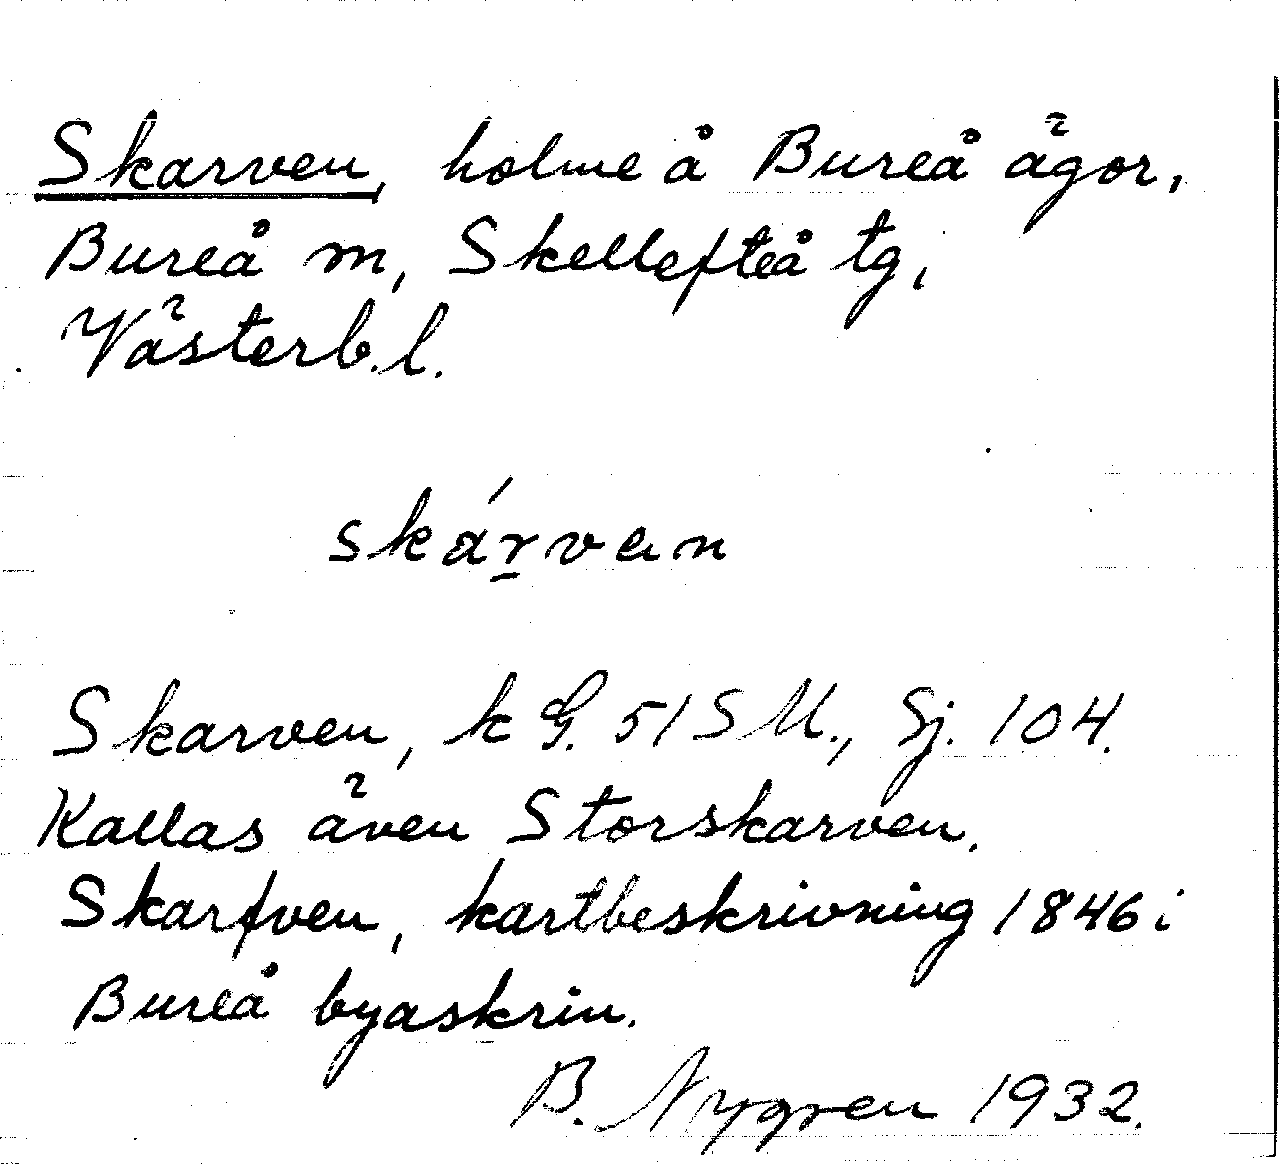 Skarven, holme å Bureå ägor,
Bureå m, Skellefteå tg,
Västerb.l.
skárvan
Skarven, k G. 51 S M., Sj. 104.
Kallas även Storskarven.
Skarfven, kartbeskrivning 1846 i
Bureå byaskrin.
B. Nygren 1932.